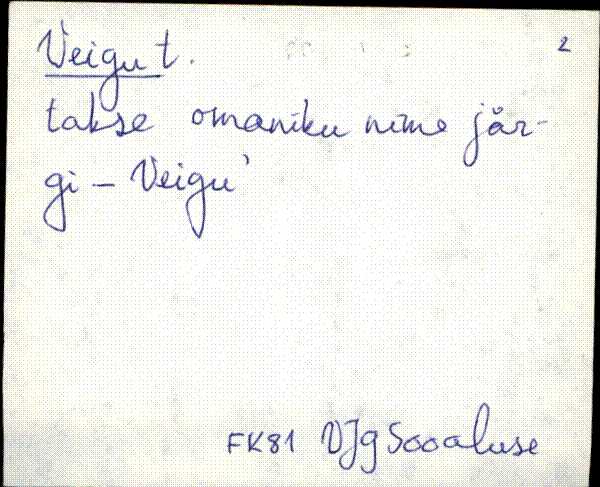 Veigu t. 2
takse omaniku nime jär-
gi – Veigu'
FK81 VJg Sooaluse